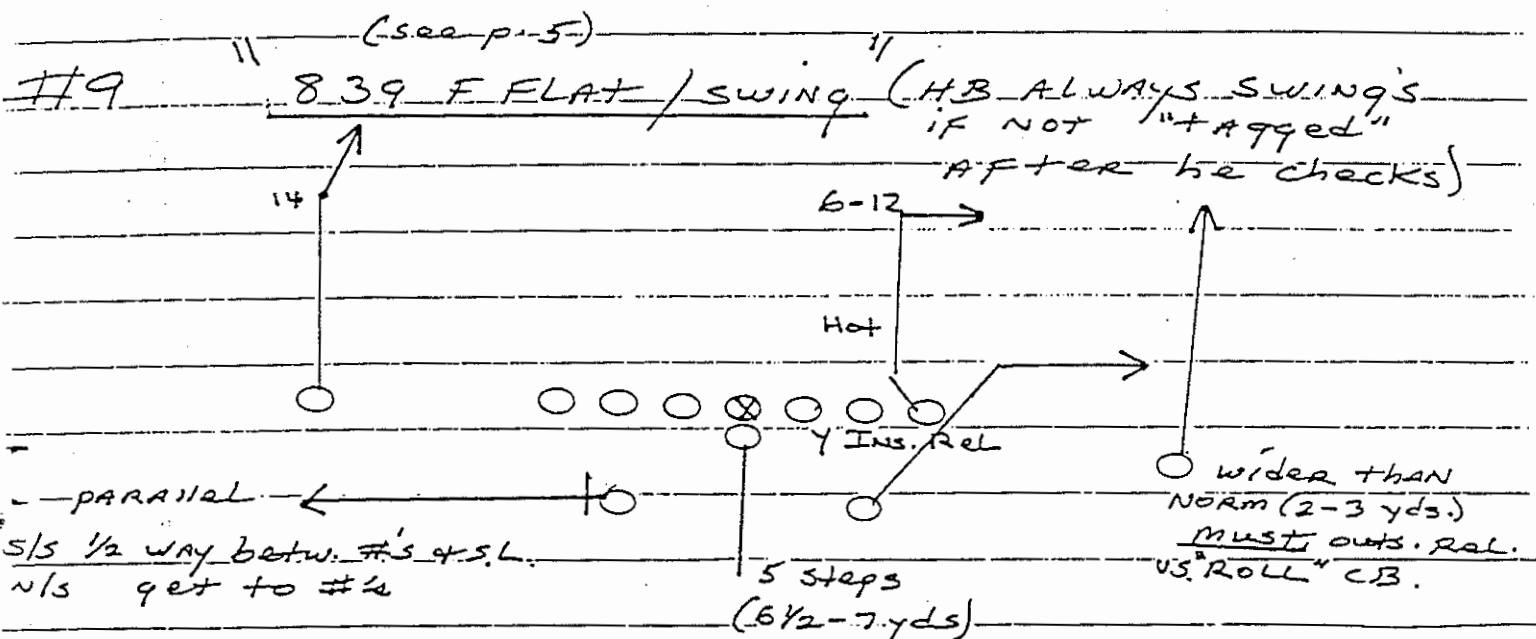 (see p. 5)
#9 "839 F FLAt / SWING" (HB ALWAYS SWING'S
if NOT "tAgged"
AFter he checks)
14
6-12
Hot
Y INS. Rel
PARAllel
S/S 1/2 WAY betw. #'s & S.L.
N/S get to #'s
5 steps
(6 1/2 - 7 yds)
wider thAN
NORM (2-3 yds.)
Must outs. Rel.
vs. "ROLL" CB.